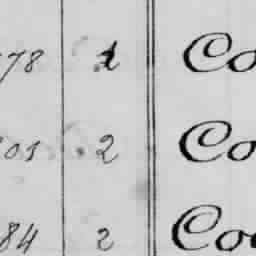 78 1 Co
01 2 Co
84 2 Coo